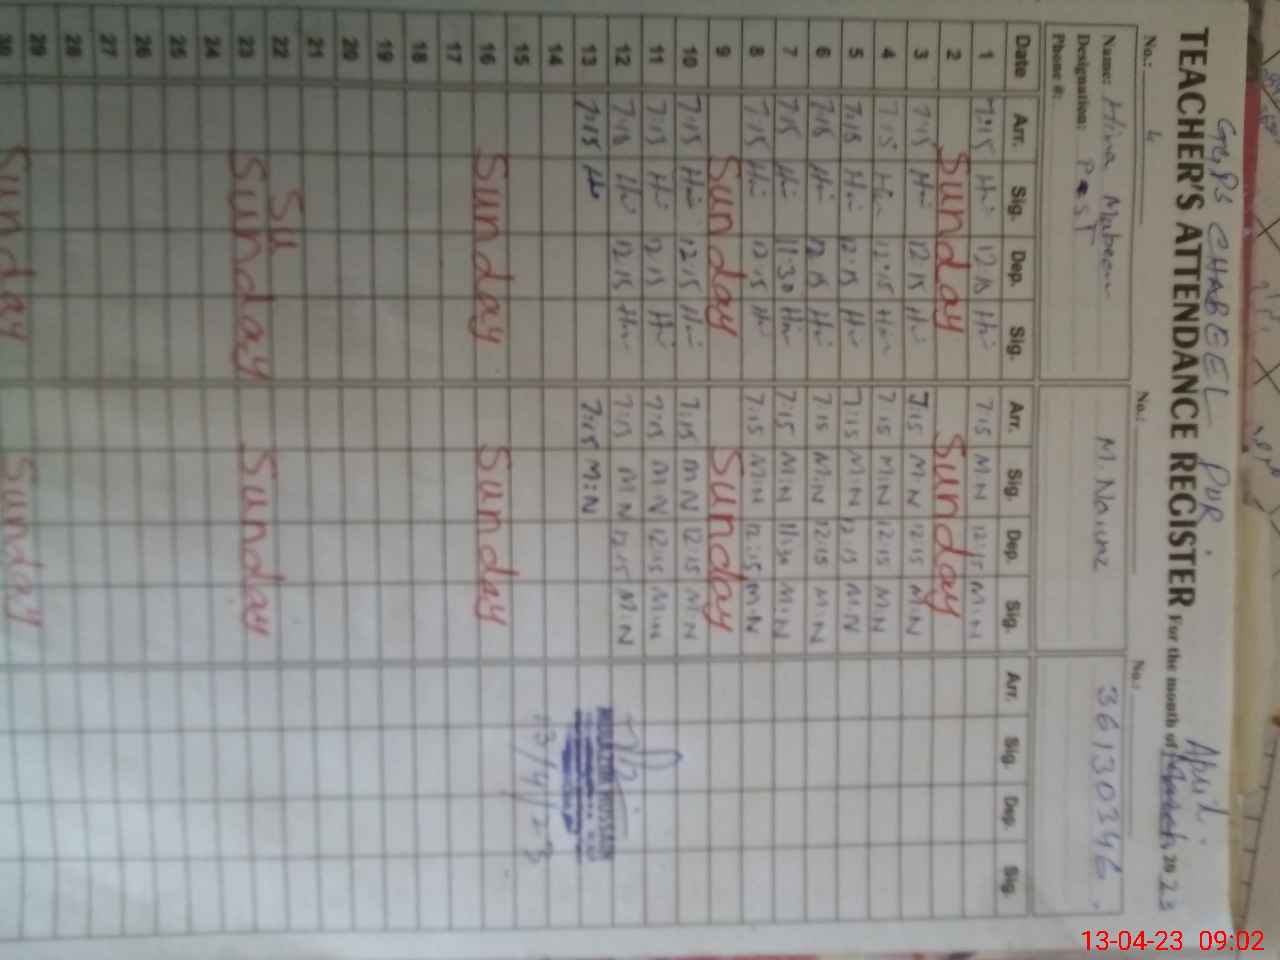 GGPS CHABEEL PUR
TEACHER'S ATTENDANCE REGISTER For the month of April 2023
No.: 4 No.: No.:
Name: Hina M. Nawaz 36130346
Designation: PST
Phone #:
Date Arr. Sig. Dep. Sig. Arr. Sig. Dep. Sig. Arr. Sig. Dep. Sig.
1 7:15 Hin 12:15 Hin 7:15 M.N 12:15 M.N
2 Sunday Sunday
3 7:15 Hin 12:15 Hin 7:15 M.N 12:15 M.N
4 7:15 Hin 12:15 Hin 7:15 M.N 12:15 M.N
5 7:15 Hin 12:15 Hin 7:15 M.N 12:15 M.N
6 7:15 Hin 12:15 Hin 7:15 M.N 12:15 M.N
7 7:15 Hin 11:30 Hin 7:15 M.N 11:30 M.N
8 7:15 Hin 12:15 Hin 7:15 M.N 12:15 M.N
9 Sunday Sunday
10 7:15 Hin 12:15 Hin 7:15 M.N 12:15 M.N
11 7:15 Hin 12:15 Hin 7:15 M.N 12:15 M.N
12 7:15 Hin 12:15 Hin 7:15 M.N 12:15 M.N
HUSSAIN
13 7:15 Hin 7:15 M:N
14
13/4/23
15
16 Sunday Sunday
17
18
19
20
21
22 Su
23 Sunday Sunday
24
25
26
27
28
29
30 Sunday Sunday
13-04-23 09:02